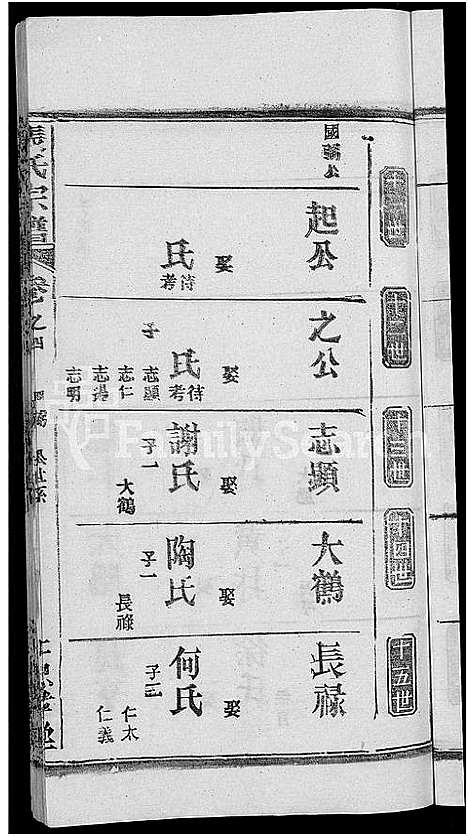 十一世
十二世
十三世
十四世
十五世
國瑞公
起公
娶
氏
待考
之公
娶
氏
待考
子
志顯
志仁
志揚
志明
志顯
娶
謝氏
子一
大鶴
大鶴
娶
陶氏
子一
長祿
長祿
娶
何氏
子二
仁太
仁義
張氏宗譜
卷之四
FamilySearch